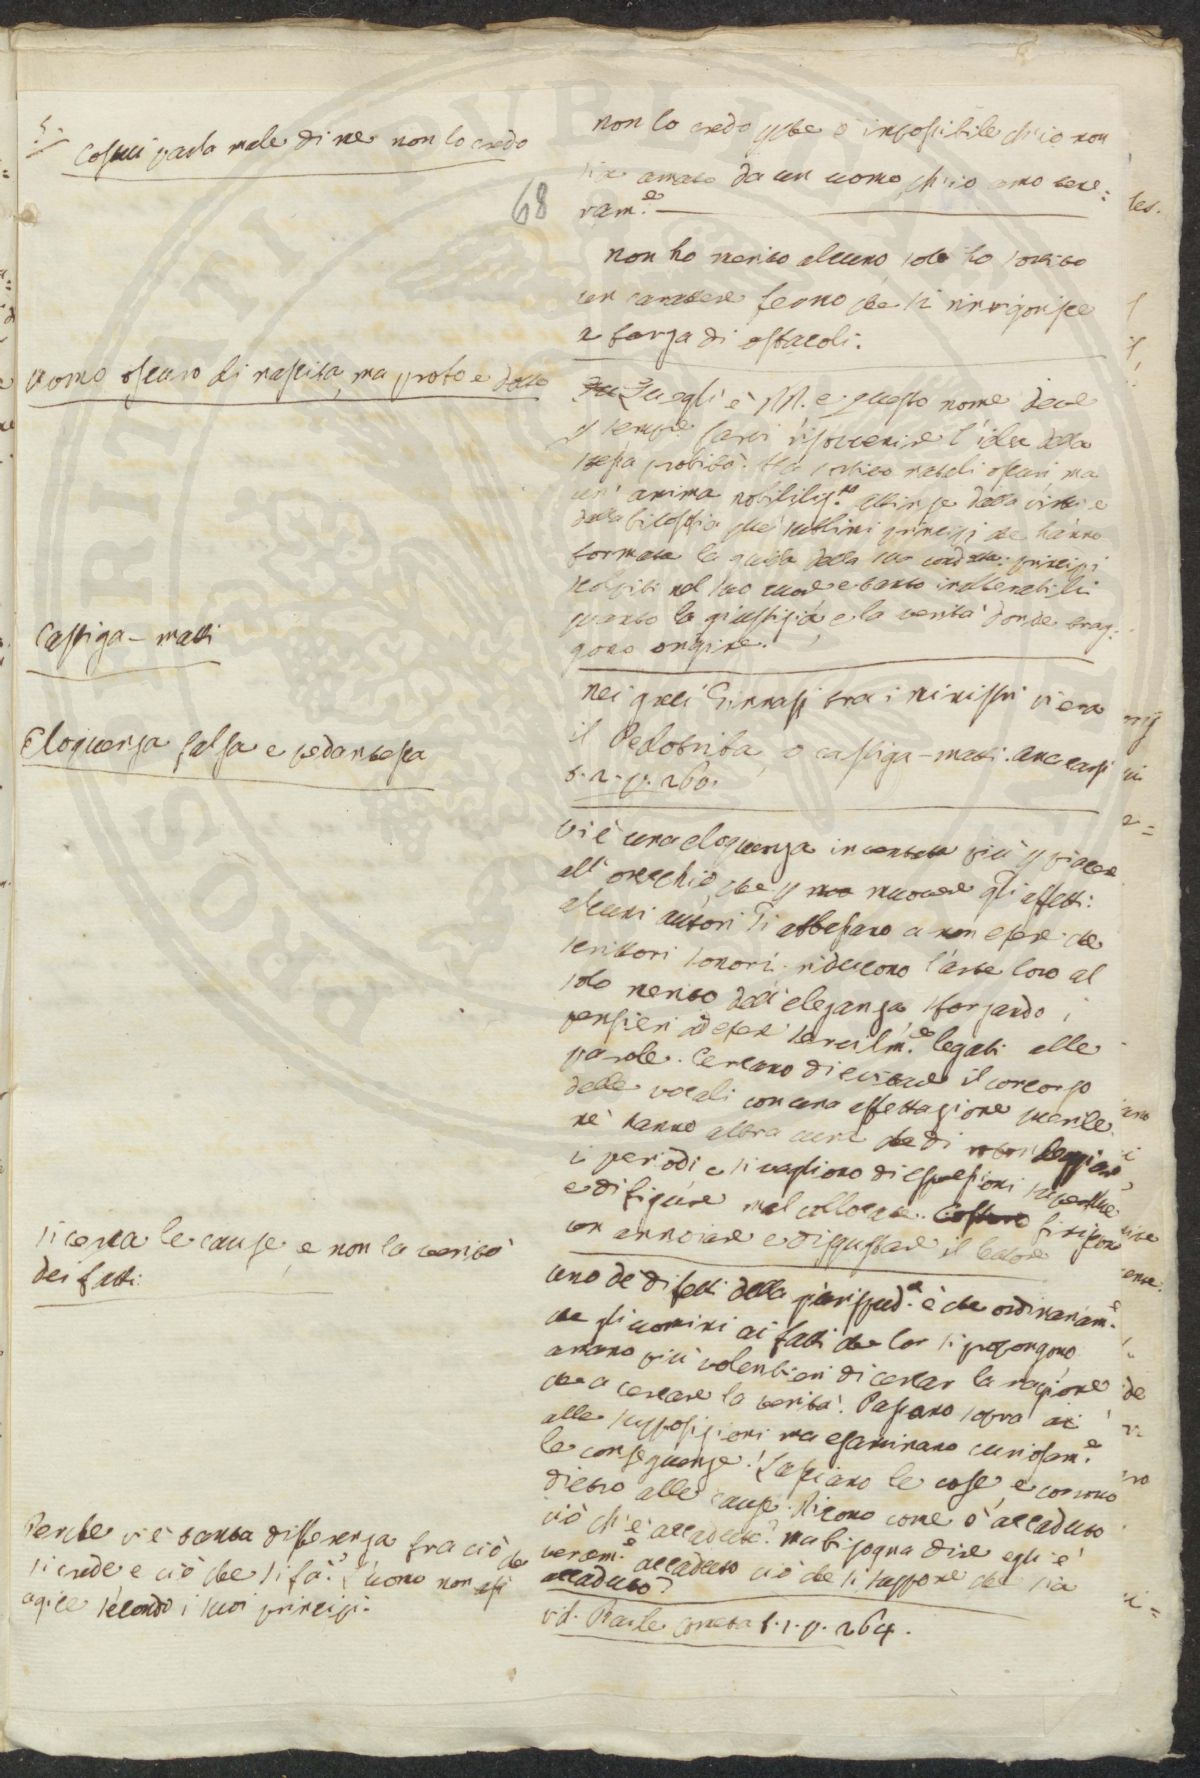 5.
Costui parla male di me non lo credo
68
non lo credo pche è impossibile ch'io non
sia amato da un uomo, ch'io amo vera=
ram.e
non ho merito alcuno, solo ho sortito
un carattere fermo che si rinvigorisce
a forza di ostacoli.
uomo oscuro di nascita, ma probo e dotto
Quegli è M. e questo nome deve
p sempre farvi risovvenire l'idea della
stessa probità. Ha sortito natali oscuri, ma
un' anima nobiliss.ma attinse dalla virtù e
dalla filosofia que' sublimi principj che hanno
formata la guida della sua condotta: principj
scolpiti nel suo cuore e tanto inalterabili
quanto la giustizia, e la verità donde trag:
gono origine.
Castiga-matti
nei greci Ginnasj tra i ministri vi era
il Pedotriba, o castiga-matti. anacarsi
t. 2. p. 260.
Eloquenza falsa e pedantesca
vi è una eloquenza inventata più p piacere
all' orecchio, che p muovere gli affetti:
alcuni autori si abbassano a non essere che
scrittori sonori. riducono l'arte loro al
solo merito dell' eleganza sforzando i
pensieri ad essere servilm.e legati alle
parole. Cercano di evitare il concorso
delle vocali con una affettazione puerile
nè hanno altra cura che di
i periodi e si vagliono di espressioni superflue
e di figure mal collocate. finiscon
con annoiare e disgustare il lettore
si cerca le cause, e non la verità
dei fatti:
uno de' difetti della giurisprud.a è che ordinariam.e
che gli uomini ai fatti che lor si propongono
amano più volentieri di cercar la ragione
che a cercare la verità. Passano sopra
alle supposizioni ma esaminano curiosam.e
le conseguenze. Lasciano le cose, e corrono
dietro alle cause. Dicono come è accaduto
ciò ch' è accaduto? ma bisogna dire egli è
veram.e accaduto ciò che si suppone che sia
accaduto?
Perchè vi è tanta differenza fra ciò che
si crede e ciò che si fà? L'uomo non
agisce secondo i suoi principj.
vid. Baile cometa t. 1. p. 264.